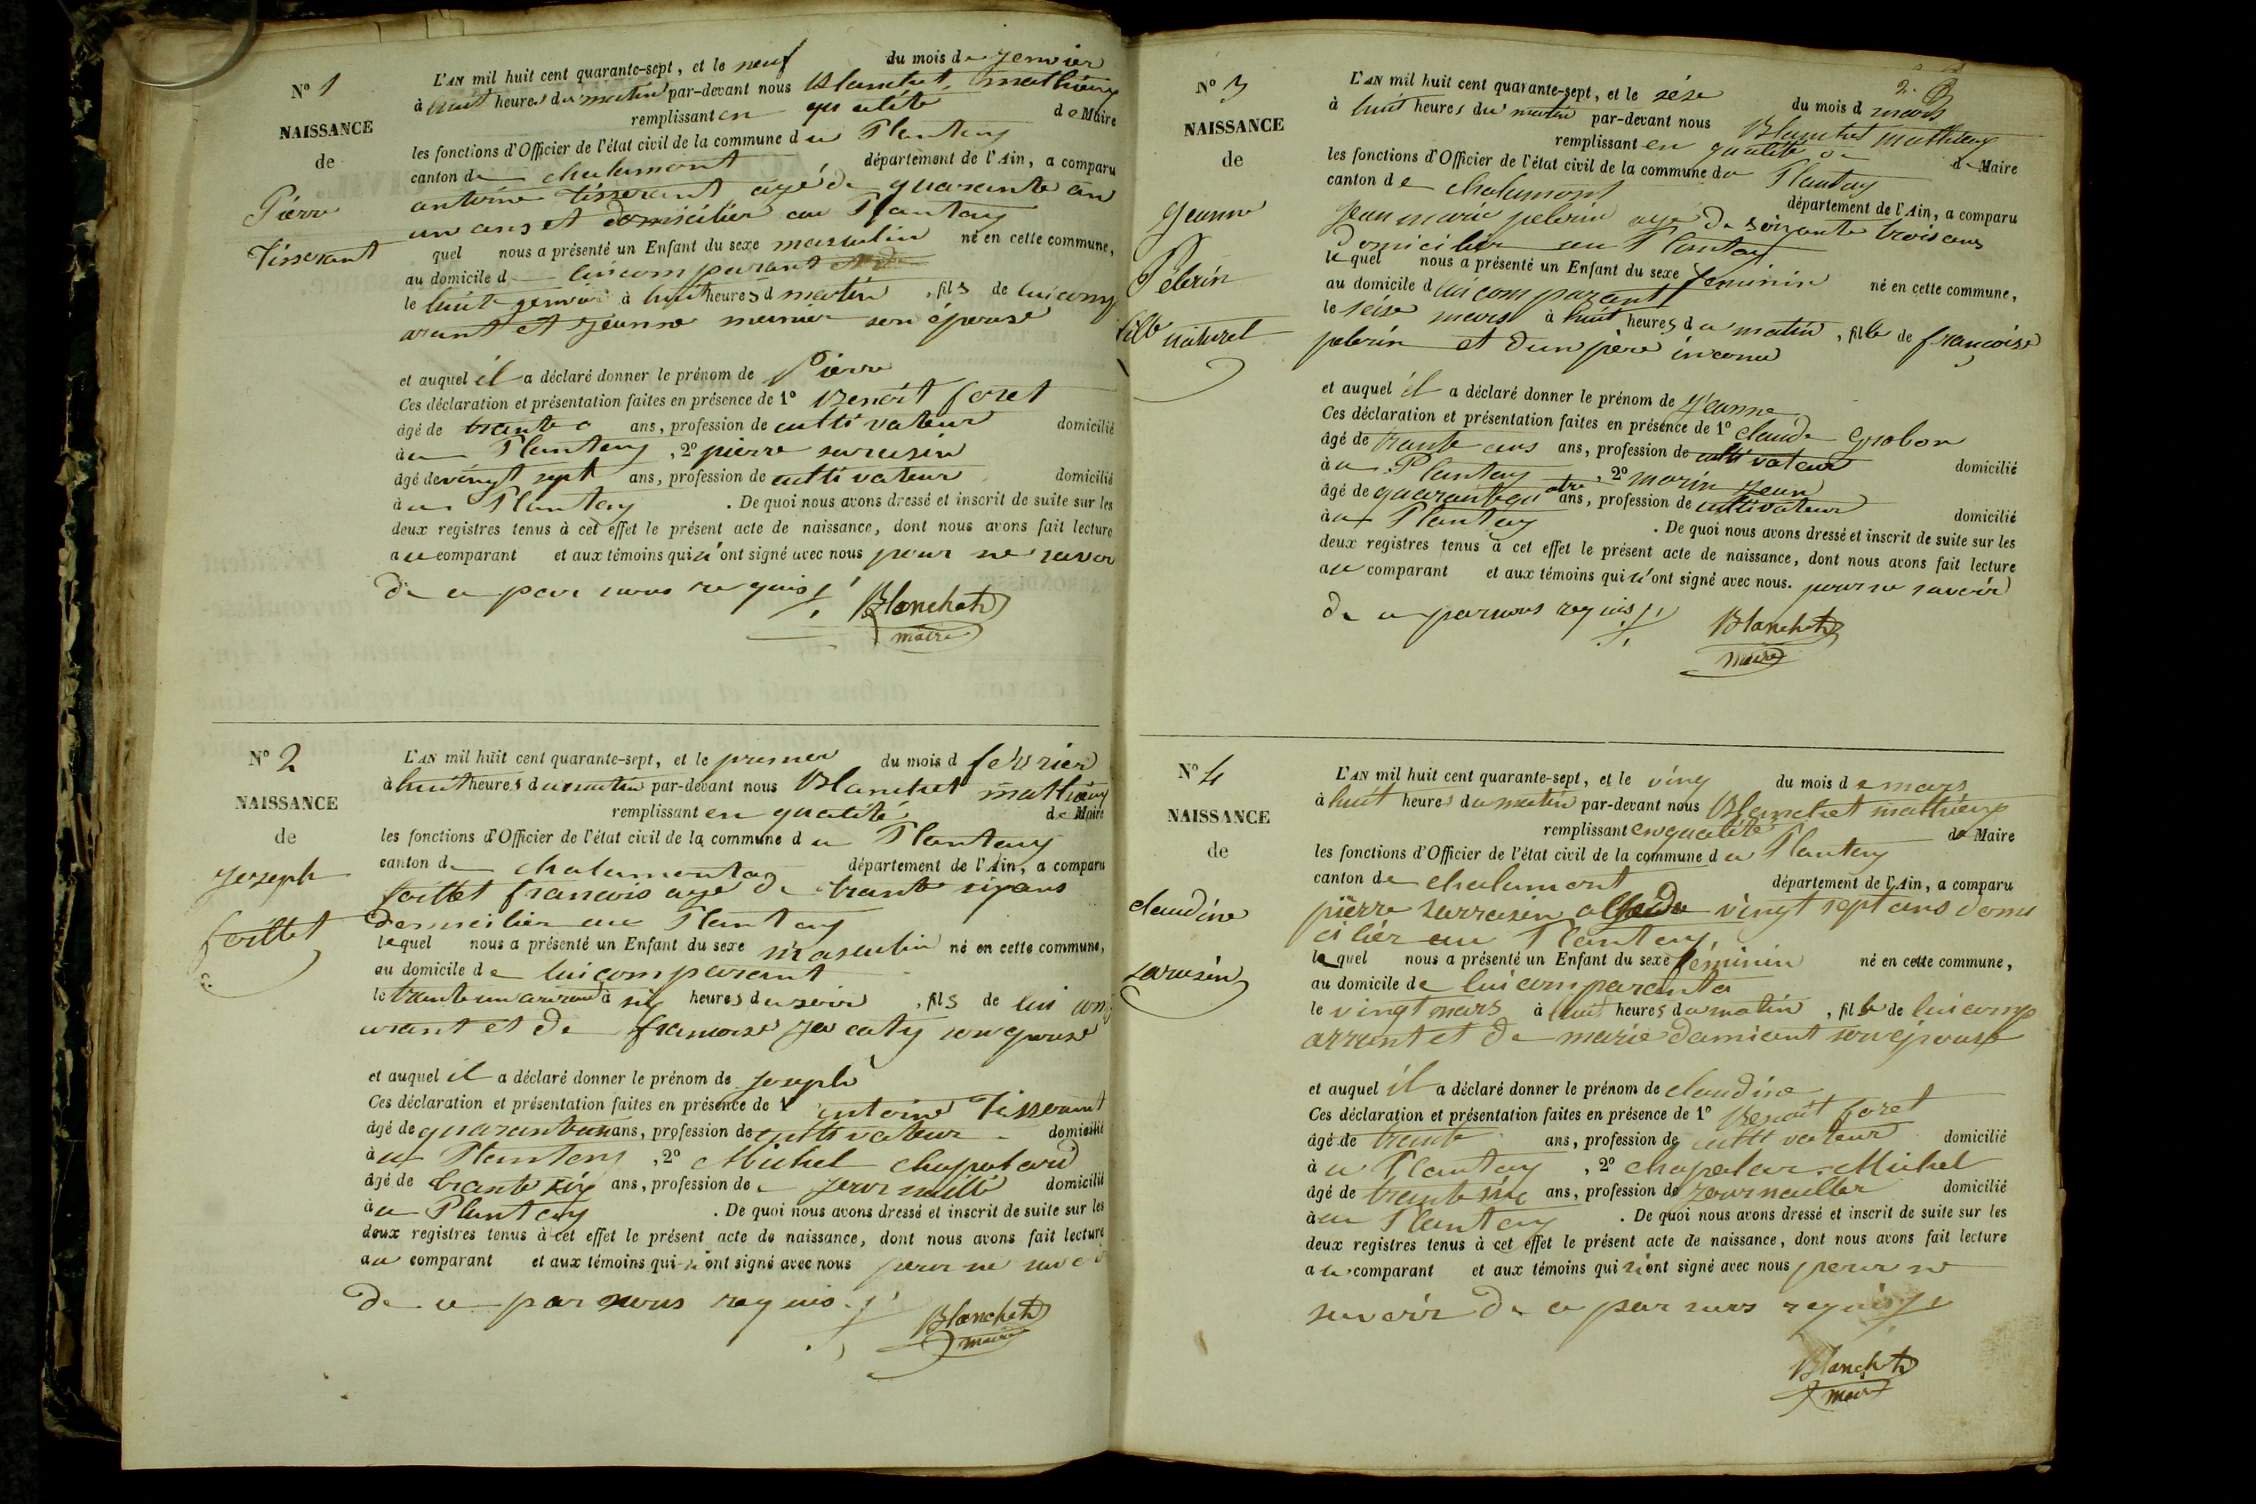 N° 1
NAISSANCE
de
Pierre
Tisserant
L'AN mil huit cent quarante-sept, et le neuf du mois de jenvier
à huit heures du matin par-devant nous Blanchet mathieux
remplissant en qualité de Maire
les fonctions d'Officier de l'état civil de la commune du Plantay
canton de chalamont, département de l'Ain, a comparu
antoine Tisserant agé de quarante an
un ans et domicilier au Plantay
quel nous a présenté un Enfant du sexe masculin né en cette commune,
au domicile d lui comparant
le huit jenvier à huit heures d matin, fils de lui comp
arant et jeanne meunier son épouse
et auquel il a déclaré donner le prénom de Pierre
Ces déclaration et présentation faites en présence de 1° Benoit foret
âgé de trante ans, profession de cultivateur domicilié
au Plantay, 2° pierre sarasin
âgé de vingt sept ans, profession de cultivateur domicilié
au Plantay. De quoi nous avons dressé et inscrit de suite sur les
deux registres tenus à cet effet le présent acte de naissance, dont nous avons fait lecture
au comparant et aux témoins qui n'ont signé avec nous pour ne savoir
de ce par nous requis
Blanchet
maire
N° 2
NAISSANCE
de
joseph
foillet
L'AN mil huit cent quarante-sept, et le premier du mois d février
à huit heures du matin par-devant nous Blanchet mathieux
remplissant en qualité de Maire
les fonctions d'Officier de l'état civil de la commune du Plantay
canton de chalamont département de l'Ain, a comparu
foillet francois agé de trante six ans
domicilier au Plantay
lequel nous a présenté un Enfant du sexe masculin né en cette commune,
au domicile de lui comparant
le trante un à six heures du soir, fils de lui comp
arant et de francoise son épouse
et auquel il a déclaré donner le prénom de joseph
Ces déclaration et présentation faites en présence de 1° antoine Tisserant
âgé de quarante un ans, profession de cultivateur domicilié
au Plantay, 2° Michel chapelard
âgé de trante six ans, profession de domicilié
au Plantay. De quoi nous avons dressé et inscrit de suite sur les
deux registres tenus à cet effet le présent acte de naissance, dont nous avons fait lecture
au comparant et aux témoins qui n'ont signé avec nous pour ne savoir
de ce par nous requis
Blanchet
maire
2
N° 3
NAISSANCE
de
Jeanne
Pélerin
fille naturel
L'AN mil huit cent quarante-sept, et le séze du mois d mars
à huit heures du matin par-devant nous Blanchet mathieux
remplissant en qualité de Maire
les fonctions d'Officier de l'état civil de la commune du Plantay
canton de chalamont département de l'Ain, a comparu
jean marie pelerin agé de soixante trois ans
domicilier au Plantay
lequel nous a présenté un Enfant du sexe feminin né en cette commune,
au domicile d lui comparant
le séise mars à huit heures du matin, fille de francoise
pelerin et d'un père inconu
et auquel il a déclaré donner le prénom de Jeanne
Ces déclaration et présentation faites en présence de 1° claude Grobon
âgé de trante ans ans, profession de cultivateur domicilié
au Plantay, 2° morin jean
âgé de quarante quatre ans, profession de cultivateur domicilié
au Plantay. De quoi nous avons dressé et inscrit de suite sur les
deux registres tenus à cet effet le présent acte de naissance, dont nous avons fait lecture
au comparant et aux témoins qui n'ont signé avec nous. pour ne savoir
de ce par nous requis
Blanchet
maire
N° 4
NAISSANCE
de
claudine
sarasin
L'AN mil huit cent quarante-sept, et le ving du mois de mars
à huit heures du matin par-devant nous Blanchet mathieux
remplissant en qualité de Maire
les fonctions d'Officier de l'état civil de la commune du Plantay
canton de chalamont département de l'Ain, a comparu
pierre sarrasin agé de vingt sept ans domi
cilier au Plantay
lequel nous a présenté un Enfant du sexe féminin né en cette commune,
au domicile de lui comparant
le vingt mars à huit heures du matin, fille de lui comp
arrant et de marie damient son épouse
et auquel il a déclaré donner le prénom de claudine
Ces déclaration et présentation faites en présence de 1° Benoit foret
âgé de trante ans, profession de cultivateur domicilié
au Plantay, 2° chapelar Michel
âgé de trante six ans, profession de journallier domicilié
au Plantay. De quoi nous avons dressé et inscrit de suite sur les
deux registres tenus à cet effet le présent acte de naissance, dont nous avons fait lecture
au comparant et aux témoins qui n'ont signé avec nous pour ne
savoir de ce par nous requis
Blanchet
maire